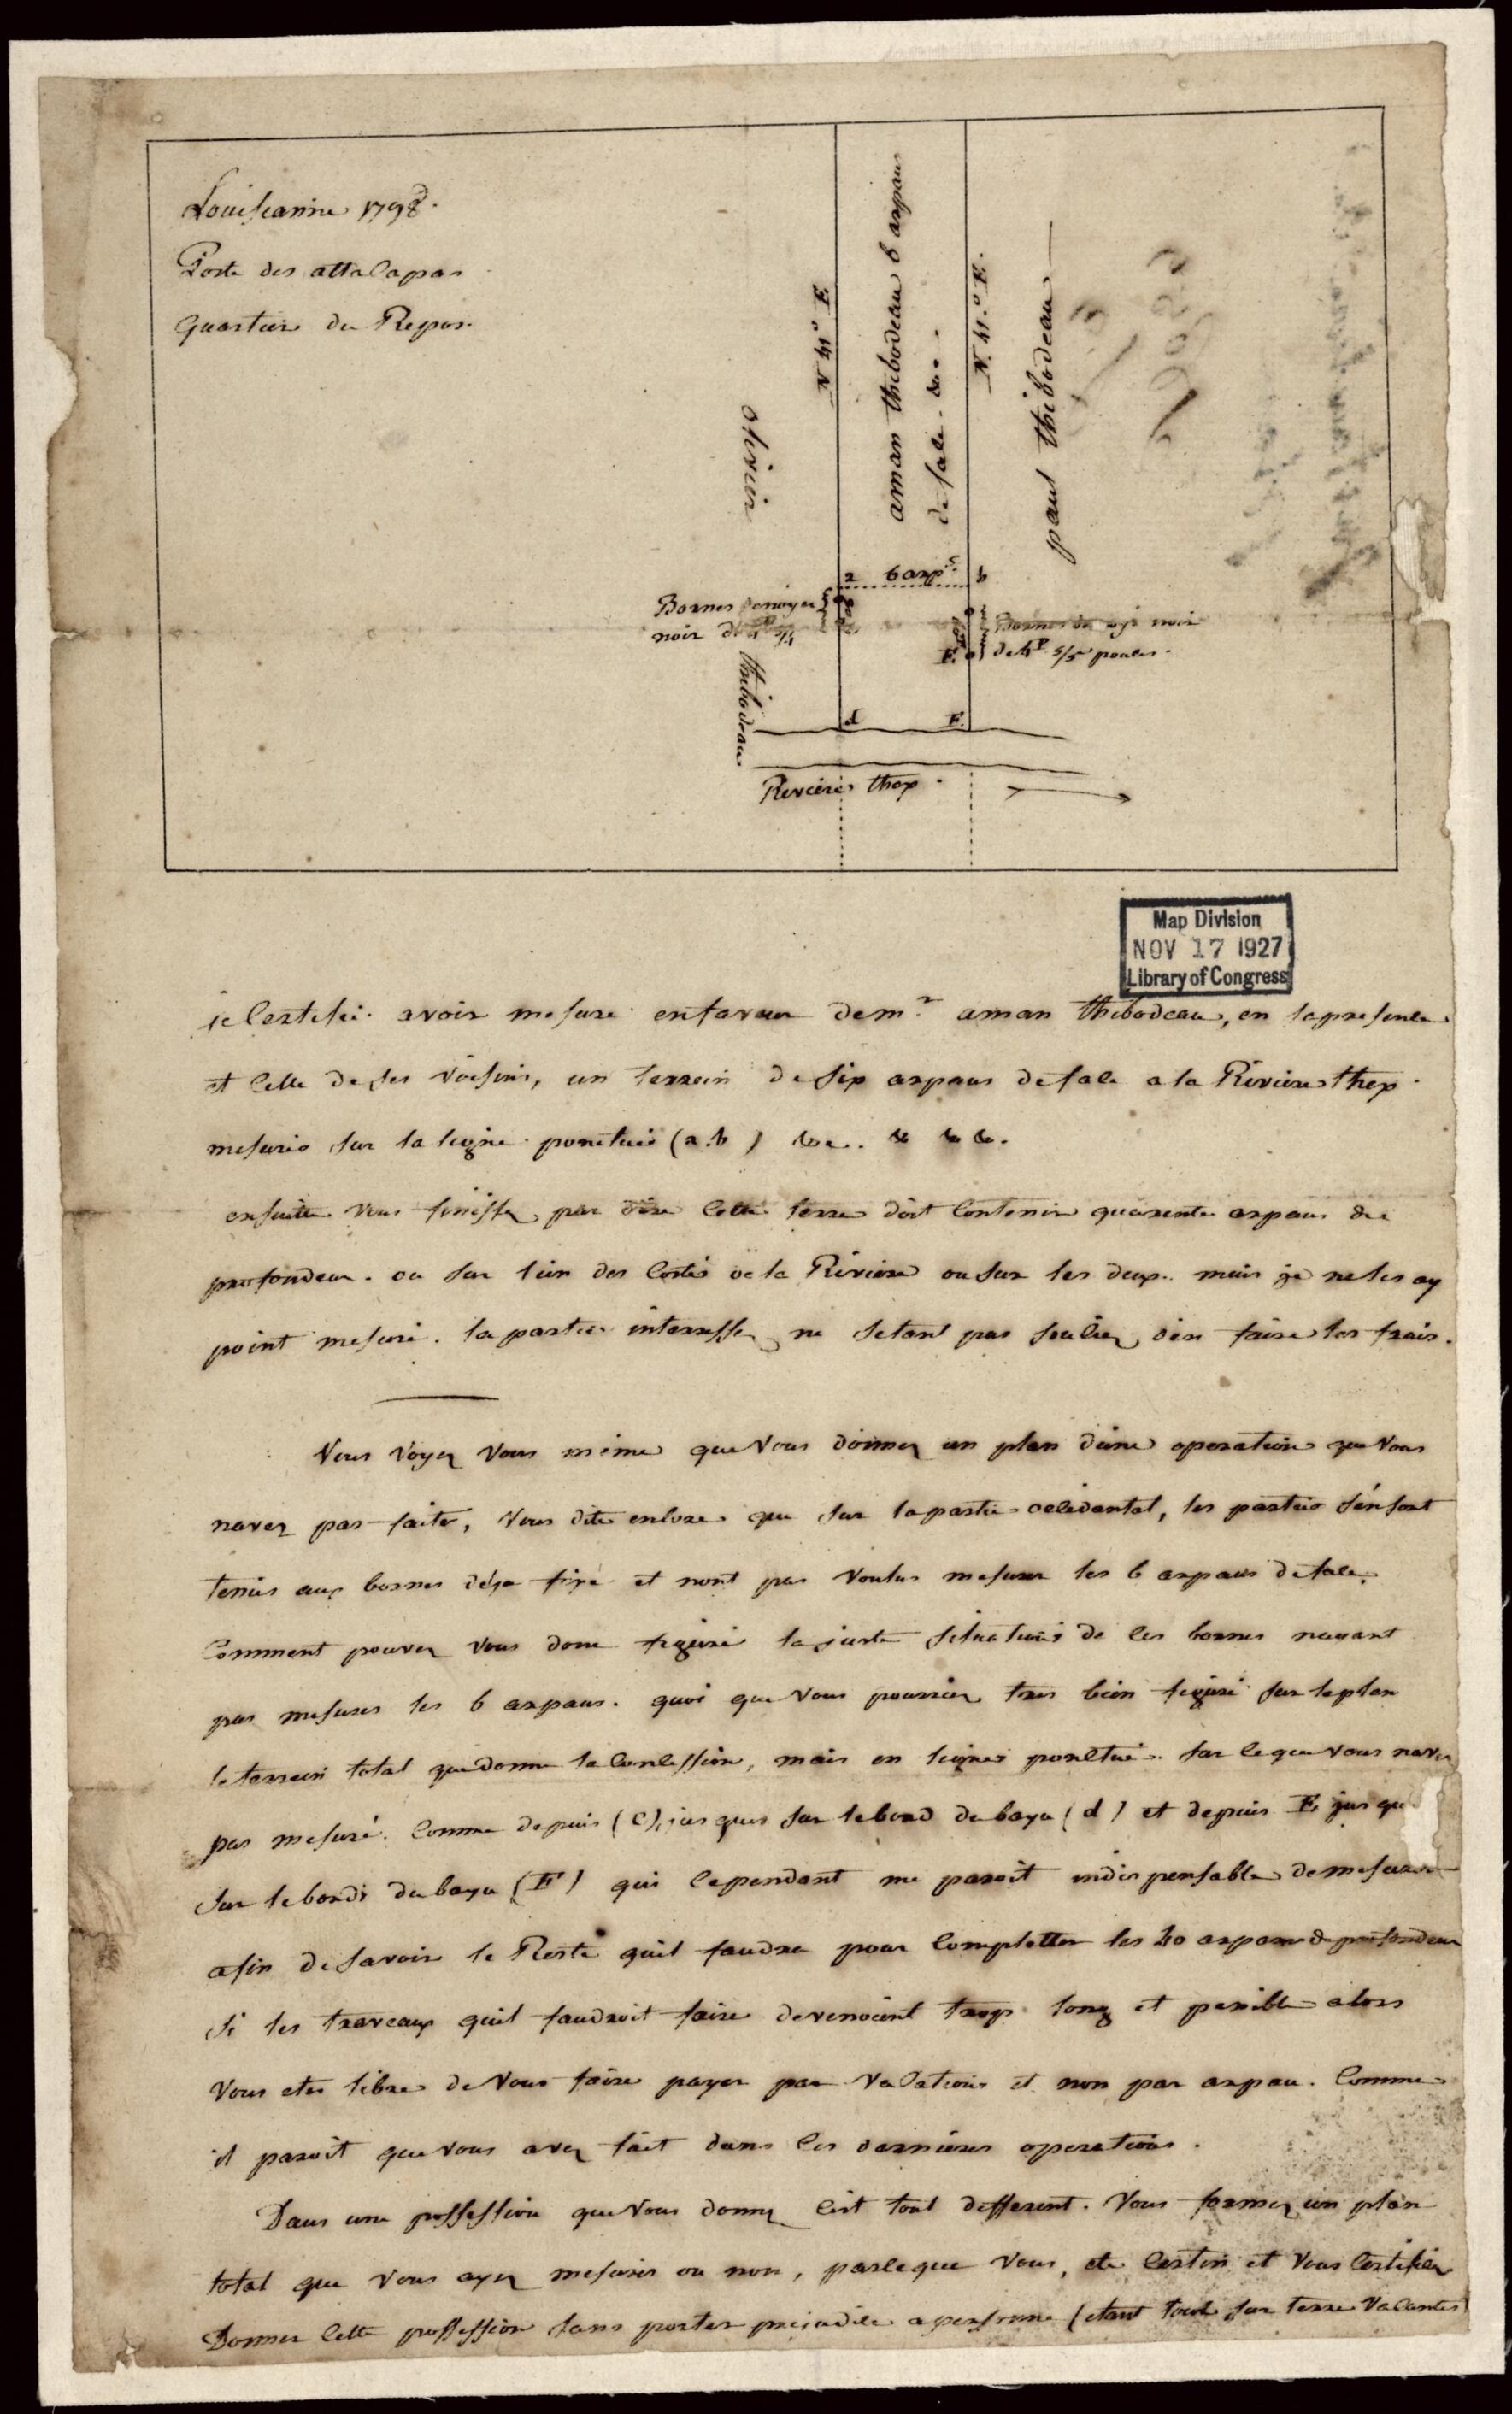 Louiseanne 1798.
Poste des attacapas
quartier du Repos.
olivier
thibodeau
N 41° E
aman thibodeau 6 arpans
de face. &c.
N. 41.° E.
paul thibodeau
a 6 arp.s b
Bornes de noyer
noir de 4 P
Bornes de noir
de 4 P 5/5 pouces.
E.
d F.
Riviere thex.
Map Division
NOV 17 1927
Library of Congress
je Certifié avoir mesuré enfaveur de m.r aman thibodeau, en sapresence
et celle de ses voisins, un terrein de six arpans de face a la Riviere thex.
mesurés sur la ligne ponctuée (a.b) &c. & & &.
ensuitte vous finissez par dire cette terre doit contenir quarente arpans de
profondeur. ou sur l'un des cotés de la Riviere ou sur les deux. mais je ne les ay
point mesuré. la partie interressée ne setant pas souciée d'en faire les frais.
Vous voyez vous mème que vous donnez un plan d'une operation que vous
navez pas faite, vous dite encore que sur la partie occidantal, les parties s'en sont
tenus aux bornes déja fixé et nont pas voulus mesurer les 6 arpans de face.
Comment pouvez vous donc figuré la juste situation de ces bornes nayant
pas mesurés les 6 arpans. quoi que vous pourriez tres bien figuré sur le plan
le terrein total que donne la Concession, mais en lignes ponctué. sur ce que vous navez
pas mesuré. Comme depuis (C) jusques sur le bord du bayu (d) et depuis E jusque
sur le bord du bayu (F) qui cependant me paroit indispensable de mesurer
afin de savoir le Reste quil faudra pour completter les 40 arpans de profondeur
si les traveaux quil faudroit faire devenoient trop long et penible alors
Vous etes libre de vous faire payer par vacations et non par arpan. Comme
il paroit que vous avez fait dans ces dernieres operations.
Dans une possession que vous donnez c'est tout different. Vous formez un plan
total que vous ayez mesurés ou non, parceque vous, ete certin et vous certifiez
Donner cette possession sans porter prejudice a personne (etant tout sur terre vacantes